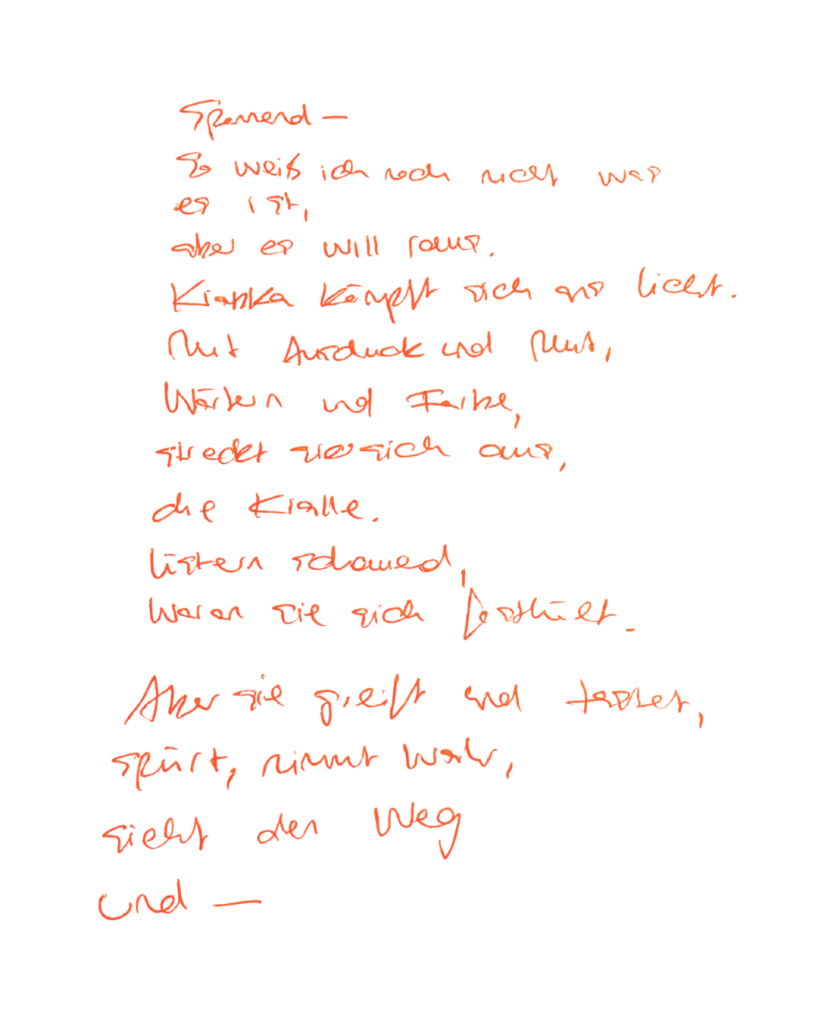 Spannend —
So weiß ich noch nicht was
es ist,
aber es will raus.
kämpft sich ans Licht.
Mit Ausdruck und Mut,
Wörtern und Farbe,
streckt sie sich aus,
die Kralle.
Lüstern schauend,
woran sie sich festhält.
Aber sie greift und tastet,
spürt, nimmt wahr,
sieht den Weg
und —